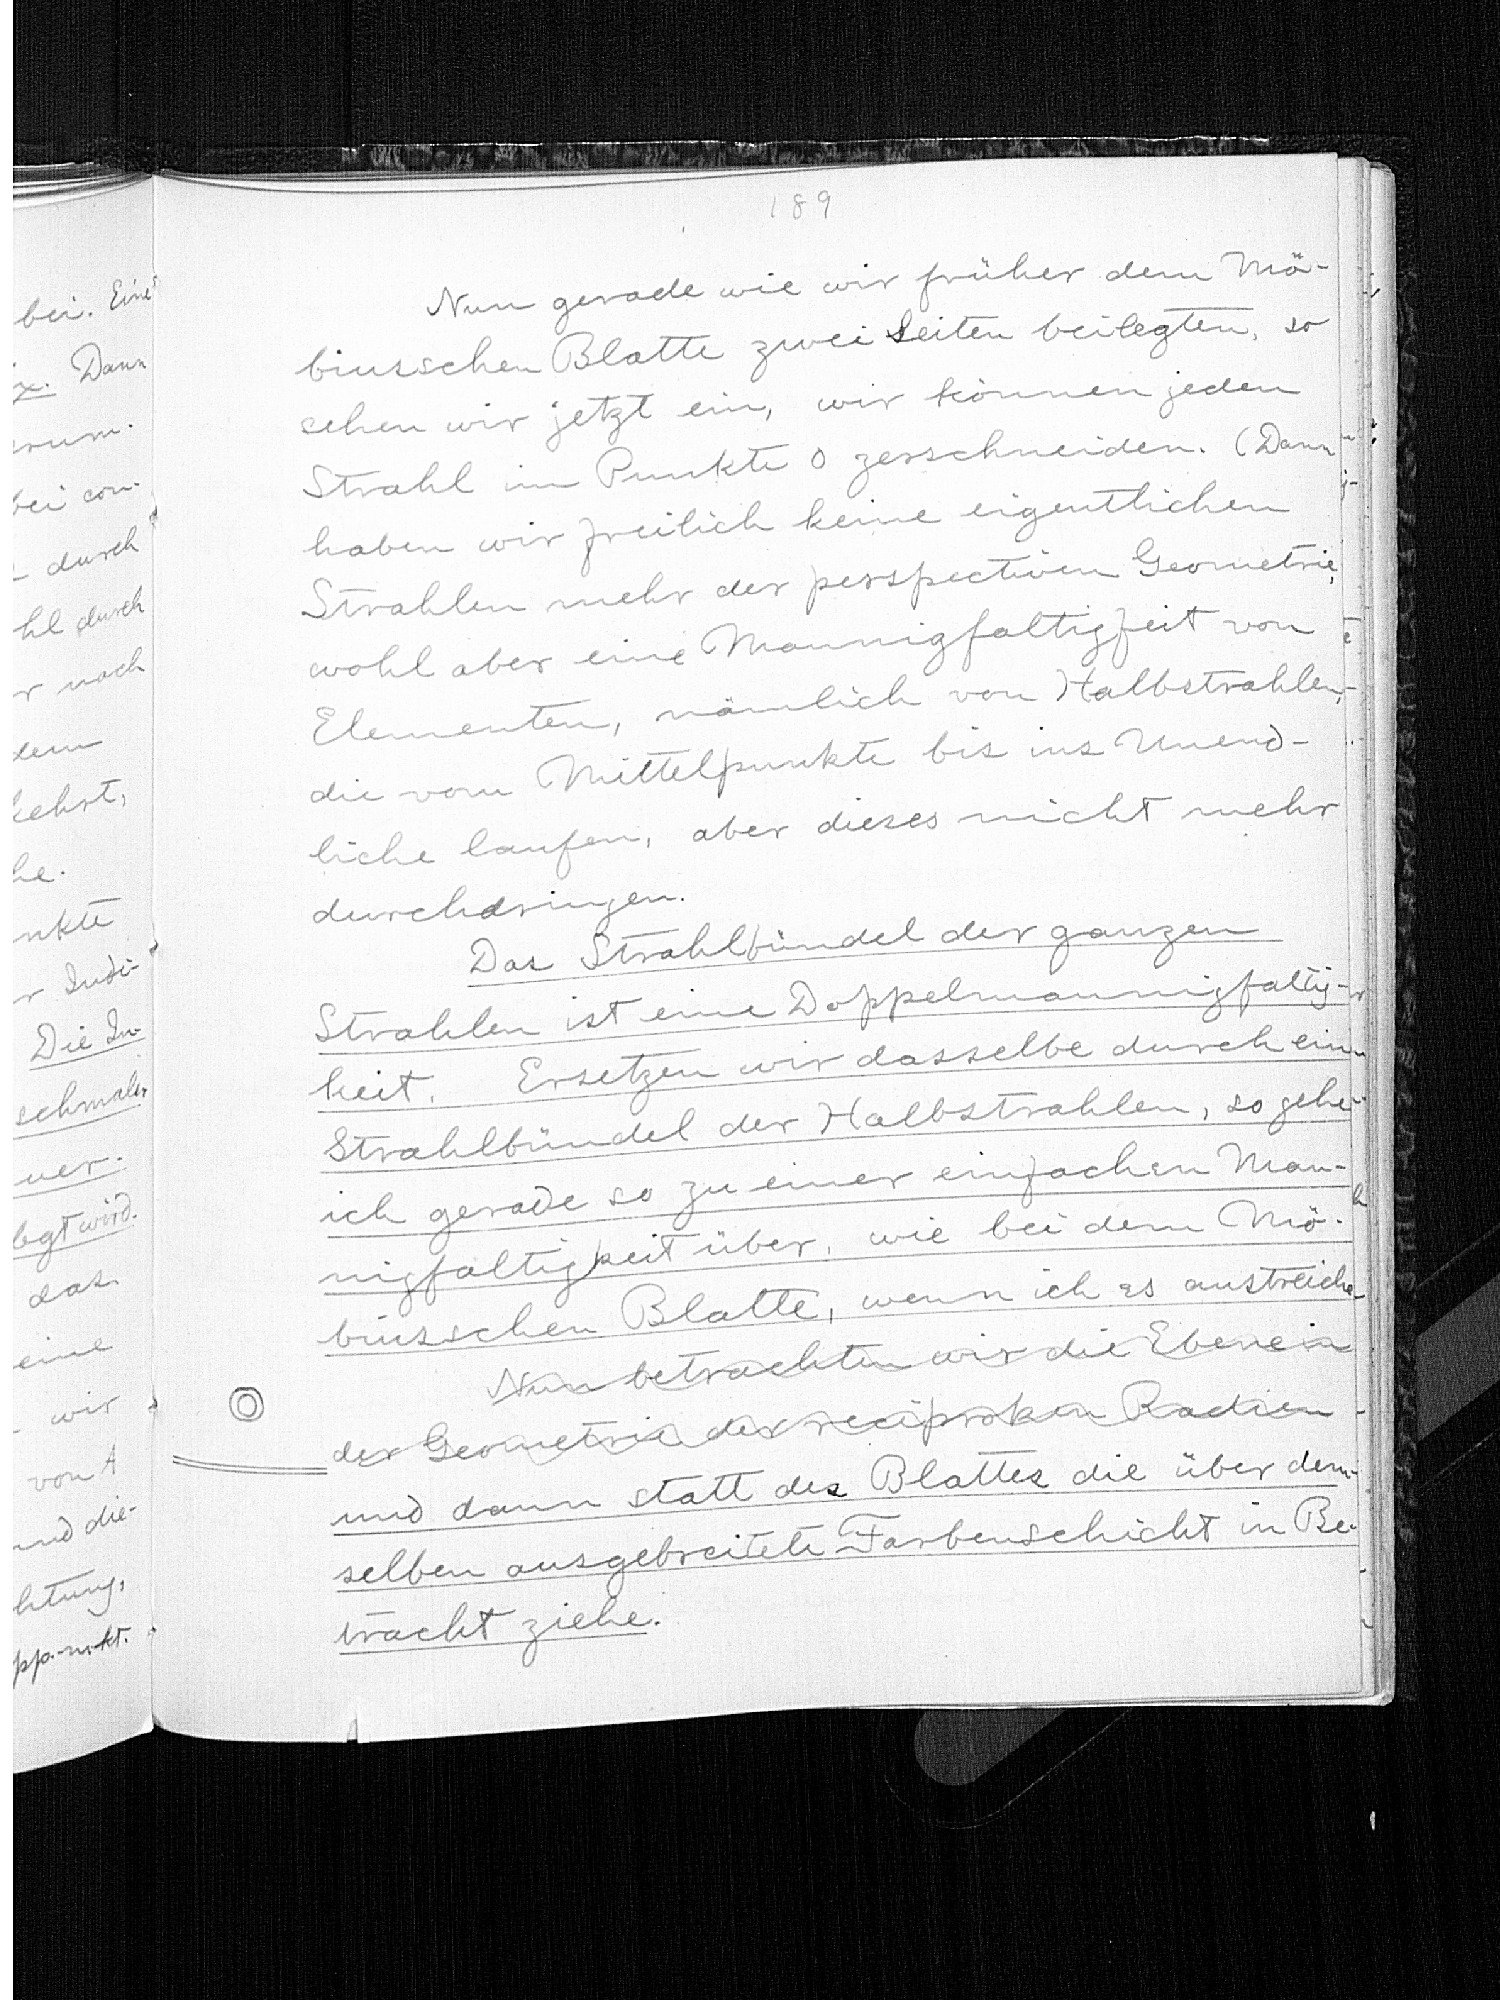 189
Nun gerade wie wir früher dem Mö-
biusschen Blatte zwei Seiten beilegten, so
sehen wir jetzt ein, wir können jeden
Strahl im Punkte O zerschneiden. (Dann
haben wir freilich keine eigentlichen
Strahlen mehr der perspectiven Geometrie,
wohl aber eine Mannigfaltigkeit von
Elementen, nämlich von Halbstrahlen,
die vom Mittelpunkte bis ins Unend-
liche laufen, aber dieses nicht mehr
durchdringen.
Das Strahlbündel der ganzen
Strahlen ist eine Doppelmannigfaltig-
keit. Ersetzen wir dasselbe durch ein
Strahlbündel der Halbstrahlen, so gehe
ich gerade so zu einer einfachen Man-
nigfaltigkeit über, wie bei dem Mö-
biusschen Blatte, wenn ich es anstreiche
Nun betrachten wir die Ebene in
der Geometrie der reciproken Radien
und dann statt des Blattes die über dem-
selben ausgebreitete Farbenschicht in Be-
tracht ziehe.
bei. Eine
x. Dann
erum.
bei con-
durch
hl durch
r noch
dem
kehrt,
he.
nkte
r Indi-
Die In-
schmaler
uer.
legt wird.
das
eine
wir
von A
und die-
htung,